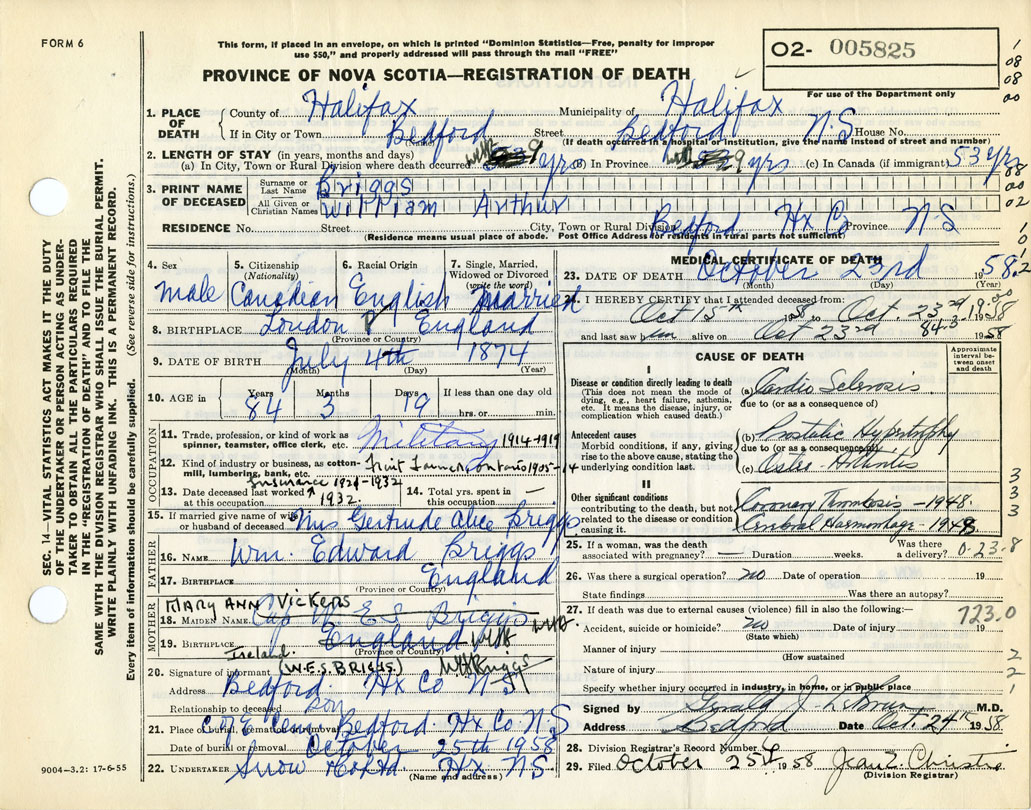 FORM 6
This form, if placed in an envelope, on which is printed "Dominion Statistics—Free, penalty for improper
use $50," and properly addressed will pass through the mail "FREE"
PROVINCE OF NOVA SCOTIA—REGISTRATION OF DEATH
02- 005825
For use of the Department only
1. PLACE OF DEATH
County of Halifax Municipality of Halifax
If in City or Town Bedford Street Bedford N.S House No.
(Name) (If death occurred in a hospital or institution, give the name instead of street and number)
2. LENGTH OF STAY (in years, months and days)
(a) In City, Town or Rural Division where death occurred 39 yrs (b) In Province 39 yrs (c) In Canada (if immigrant) 53 yrs
3. PRINT NAME OF DECEASED
Surname or Last Name Briggs
All Given or Christian Names William Arthur
RESIDENCE No. Street City, Town or Rural Division Bedford Hx Co Province N-S
(Residence means usual place of abode. Post Office Address for residents in rural parts not sufficient)
4. Sex 5. Citizenship (Nationality) 6. Racial Origin 7. Single, Married, Widowed or Divorced (write the word)
Male Canadian English Married
8. BIRTHPLACE London England
(Province or Country)
9. DATE OF BIRTH July 4th 1874
(Month) (Day) (Year)
10. AGE in Years Months Days If less than one day old
84 3 19 hrs. or min.
OCCUPATION
11. Trade, profession, or kind of work as spinner, teamster, office clerk, etc. Military 1914-1919
12. Kind of industry or business, as cotton-mill, lumbering, bank, etc. Fruit Farmer Ontario 1905-14
Insurance 1920-1932
13. Date deceased last worked at this occupation 1932. 14. Total yrs. spent in this occupation —
15. If married give name of wife or husband of deceased Mrs Gertrude Alice Briggs
FATHER
16. NAME Wm. Edward Briggs
17. BIRTHPLACE England
(Province or Country)
MOTHER
MARY ANN VICKERS
18. MAIDEN NAME Cap W. E S Briggs
19. BIRTHPLACE England
(Province or Country)
Ireland.
20. Signature of informant (W.E.S. BRIGGS.)
Address Bedford Hx Co N S
Relationship to deceased son
21. Place of burial, cremation or removal C of E Cem. Bedford Hx Co. N.S
Date of burial or removal October 25th 1958
22. UNDERTAKER Snow & Co Ltd Hx NS
(Name and address)
9004—3.2: 17-6-55
MEDICAL CERTIFICATE OF DEATH
23. DATE OF DEATH October 23rd 1958
(Month) (Day) (Year)
24. I HEREBY CERTIFY that I attended deceased from:
Oct 15th 1958 to Oct. 23rd 1958
and last saw him alive on Oct 23rd 1958
CAUSE OF DEATH
Approximate interval between onset and death
I
Disease or condition directly leading to death
(This does not mean the mode of dying, e.g., heart failure, asthenia, etc. It means the disease, injury, or complication which caused death.)
(a) Cardio Sclerosis
due to (or as a consequence of)
Antecedent causes
Morbid conditions, if any, giving rise to the above cause, stating the underlying condition last.
(b) Prostatic Hypertrophy
due to (or as a consequence of)
(c) Osteo-Arthritis
II
Other significant conditions
contributing to the death, but not related to the disease or condition causing it.
Coronary Thrombosis - 1948.
Cerebral Haemorrhage - 1948
25. If a woman, was the death associated with pregnancy? — Duration weeks. Was there a delivery? 0-23-8
26. Was there a surgical operation? no Date of operation 19
State findings Was there an autopsy?
27. If death was due to external causes (violence) fill in also the following:— 723.0
Accident, suicide or homicide? no Date of injury 19
(State which)
Manner of injury
(How sustained
Nature of injury
Specify whether injury occurred in industry, in home, or in public place
Signed by Gerald J. LeBrun M.D.
Address Bedford Date Oct. 24th 1958.
28. Division Registrar's Record Number
29. Filed October 25th 1958 Jean E. Christie
(Division Registrar)
SEC. 14—VITAL STATISTICS ACT MAKES IT THE DUTY
OF THE UNDERTAKER OR PERSON ACTING AS UNDER-
TAKER TO OBTAIN ALL THE PARTICULARS REQUIRED
IN THE "REGISTRATION OF DEATH" AND TO FILE THE
SAME WITH THE DIVISION REGISTRAR WHO SHALL ISSUE THE BURIAL PERMIT.
WRITE PLAINLY WITH UNFADING INK. THIS IS A PERMANENT RECORD.
Every item of information should be carefully supplied. (See reverse side for instructions.)